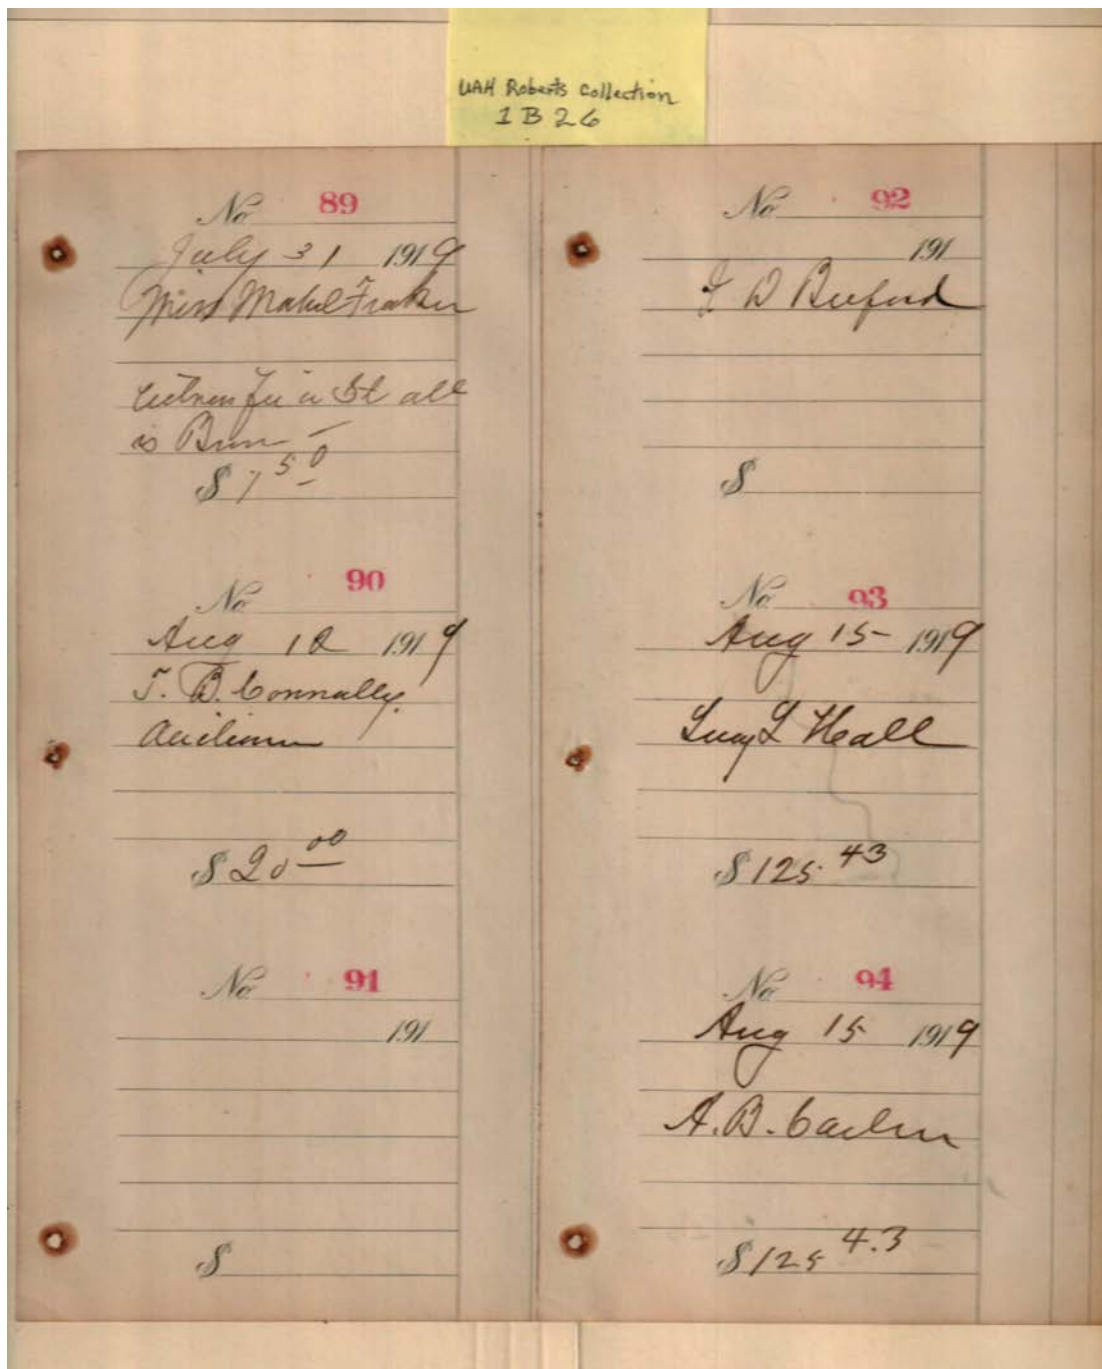 UAH Roberts Collection
1 B 26
No 89
July 31 1919
Miss Mabel Fraker
in St all
is
$ 7 50
No 90
Aug 12 1919
T. B. Connally.
$ 20 00
No 91
191
$
No 92
191
D Buford
$
No 93
Aug 15 1919
Lucy L Hall
$ 125 43
No 94
Aug 15 1919
A. B.
$ 125 43